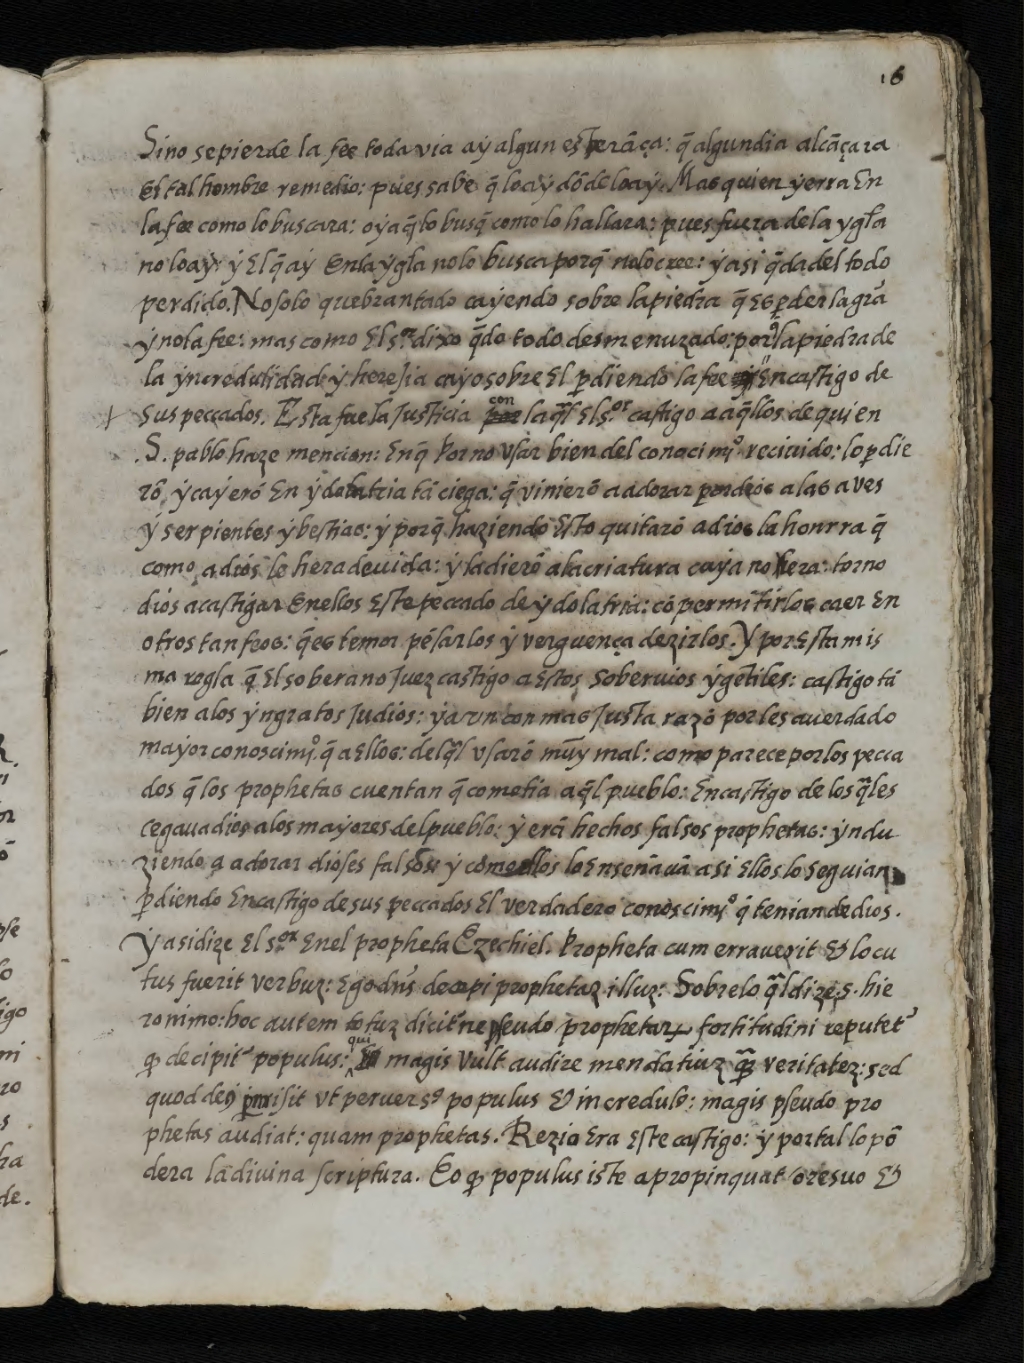 16
Sino se pierde la fee toda via aẏ algun esperāça: q̄ algun dia alcāçara
El tal hombre remedio: pues sabe q̄ lo aẏ dōde lo aẏ. Mas quien ẏerra En
la fee como lo buscara: o ẏa q̄ lo busq̄ como lo hallara: pues fuera de la ygła
no lo aẏ: ẏ El q̄ aẏ En la ẏgła no lo busca porq̄ no lo cree: ẏ asi q̄da del todo
perdido. No solo quebrantado caẏendo sobre la piedra q̄ Es ꝑder la gr̄a
ẏ no la fee: mas como El s.ᵒʳ dixo q̄do todo desmenuzado: porq̄ la piedra de
la ẏncredulidad ẏ hereJia caẏo sobre El ꝑdiendo la fee En castigo de
sus peccados. Esta fue la Justicia con la q̄l El s.ᵒʳ castigo a aq̄llos de quien
.S. pablo haze mencion: En q̄ Por no vsar bien del conocimỹ.ᵒ reciuido: lo ꝑdie
rō, ẏ caẏerō En ẏdolatria tā ciega: q̄ vinierō a adorar por dios a las aves
ẏ serpientes ẏ bestias: ẏ porq̄ haziendo Esto quitarō a dios la honrra q̄
como a dios le hera deuida: ẏ la dierō a la criatura cuẏa no hera: torno
dios a castigar En ellos Este peccado de ẏdolatria: cō permitirlos caer En
otros tan feos: q̄ es temor pēsarlos ẏ verguença dezirlos. Y por Esta mis
ma regla q̄ El soberano Juez castigo a Estos soberuios ẏ gētiles: castigo tā
bien a los ẏngratos Judios: ẏ a vn con mas Justa razō por les auer dado
maẏor conoscimỹ.ᵒ q̄ a Ellos: del q̄l vsarō muẏ mal: como parece por los pecca
dos q̄ los prophetas cuentan q̄ cometia aq̄l pueblo: En castigo de los q̄les
cegaua dios a los maẏores del pueblo: ẏ erā hechos falsos prophetas: ẏndu
ziendo a adorar dioses falsos: ẏ como ellos lo Enseñauā asi Ellos lo seguian
ꝑdiendo En castigo de sus peccados El verdadero conoscimỹ.ᵒ q̄ tenian de dios.
Ẏ asi dize El s.ᵒʳ En el propheta Ezechiel. Propheta cum errauerit & locu
tus fuerit verbuz: Ego dn̄s decepi prophetaz illuz: Sobre lo q̄l dize .s. hie
ronimo: hoc autem totuz dicit ne pseudo prophetarꝝ fortitudini reputet᷒
ꝙ decipit᷒ populus: qui magis vult audire mendatiuz quā veritatez: sed
quod deꝰ permisit vt peruersꝰ populus & incredulꝰ: magis pseudo pro
phetas audiat: quam prophetas. Rezio Era Este castigo: ẏ por tal lo pō
dera la diuina scriptura. Eo ꝙ populus iste apropinquat ore suo &